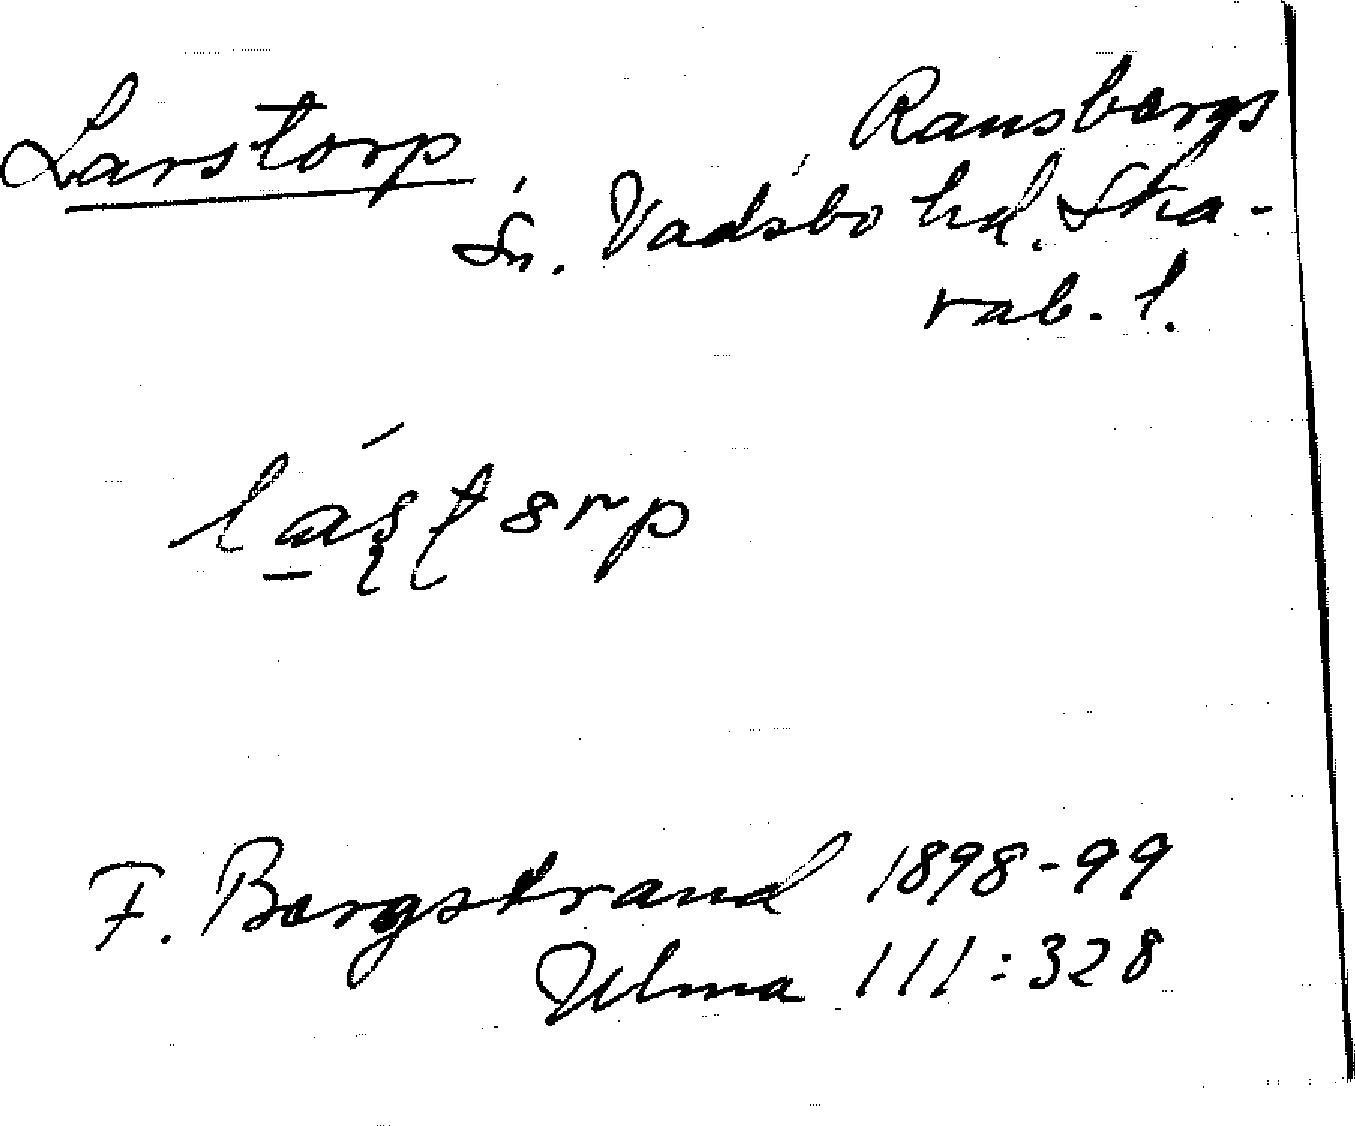 Larstorp
Ransbergs
sn. Vadsbo hd. Ska-
rab. l.
F. Bergstrand 1898-99
Ulma 111:328